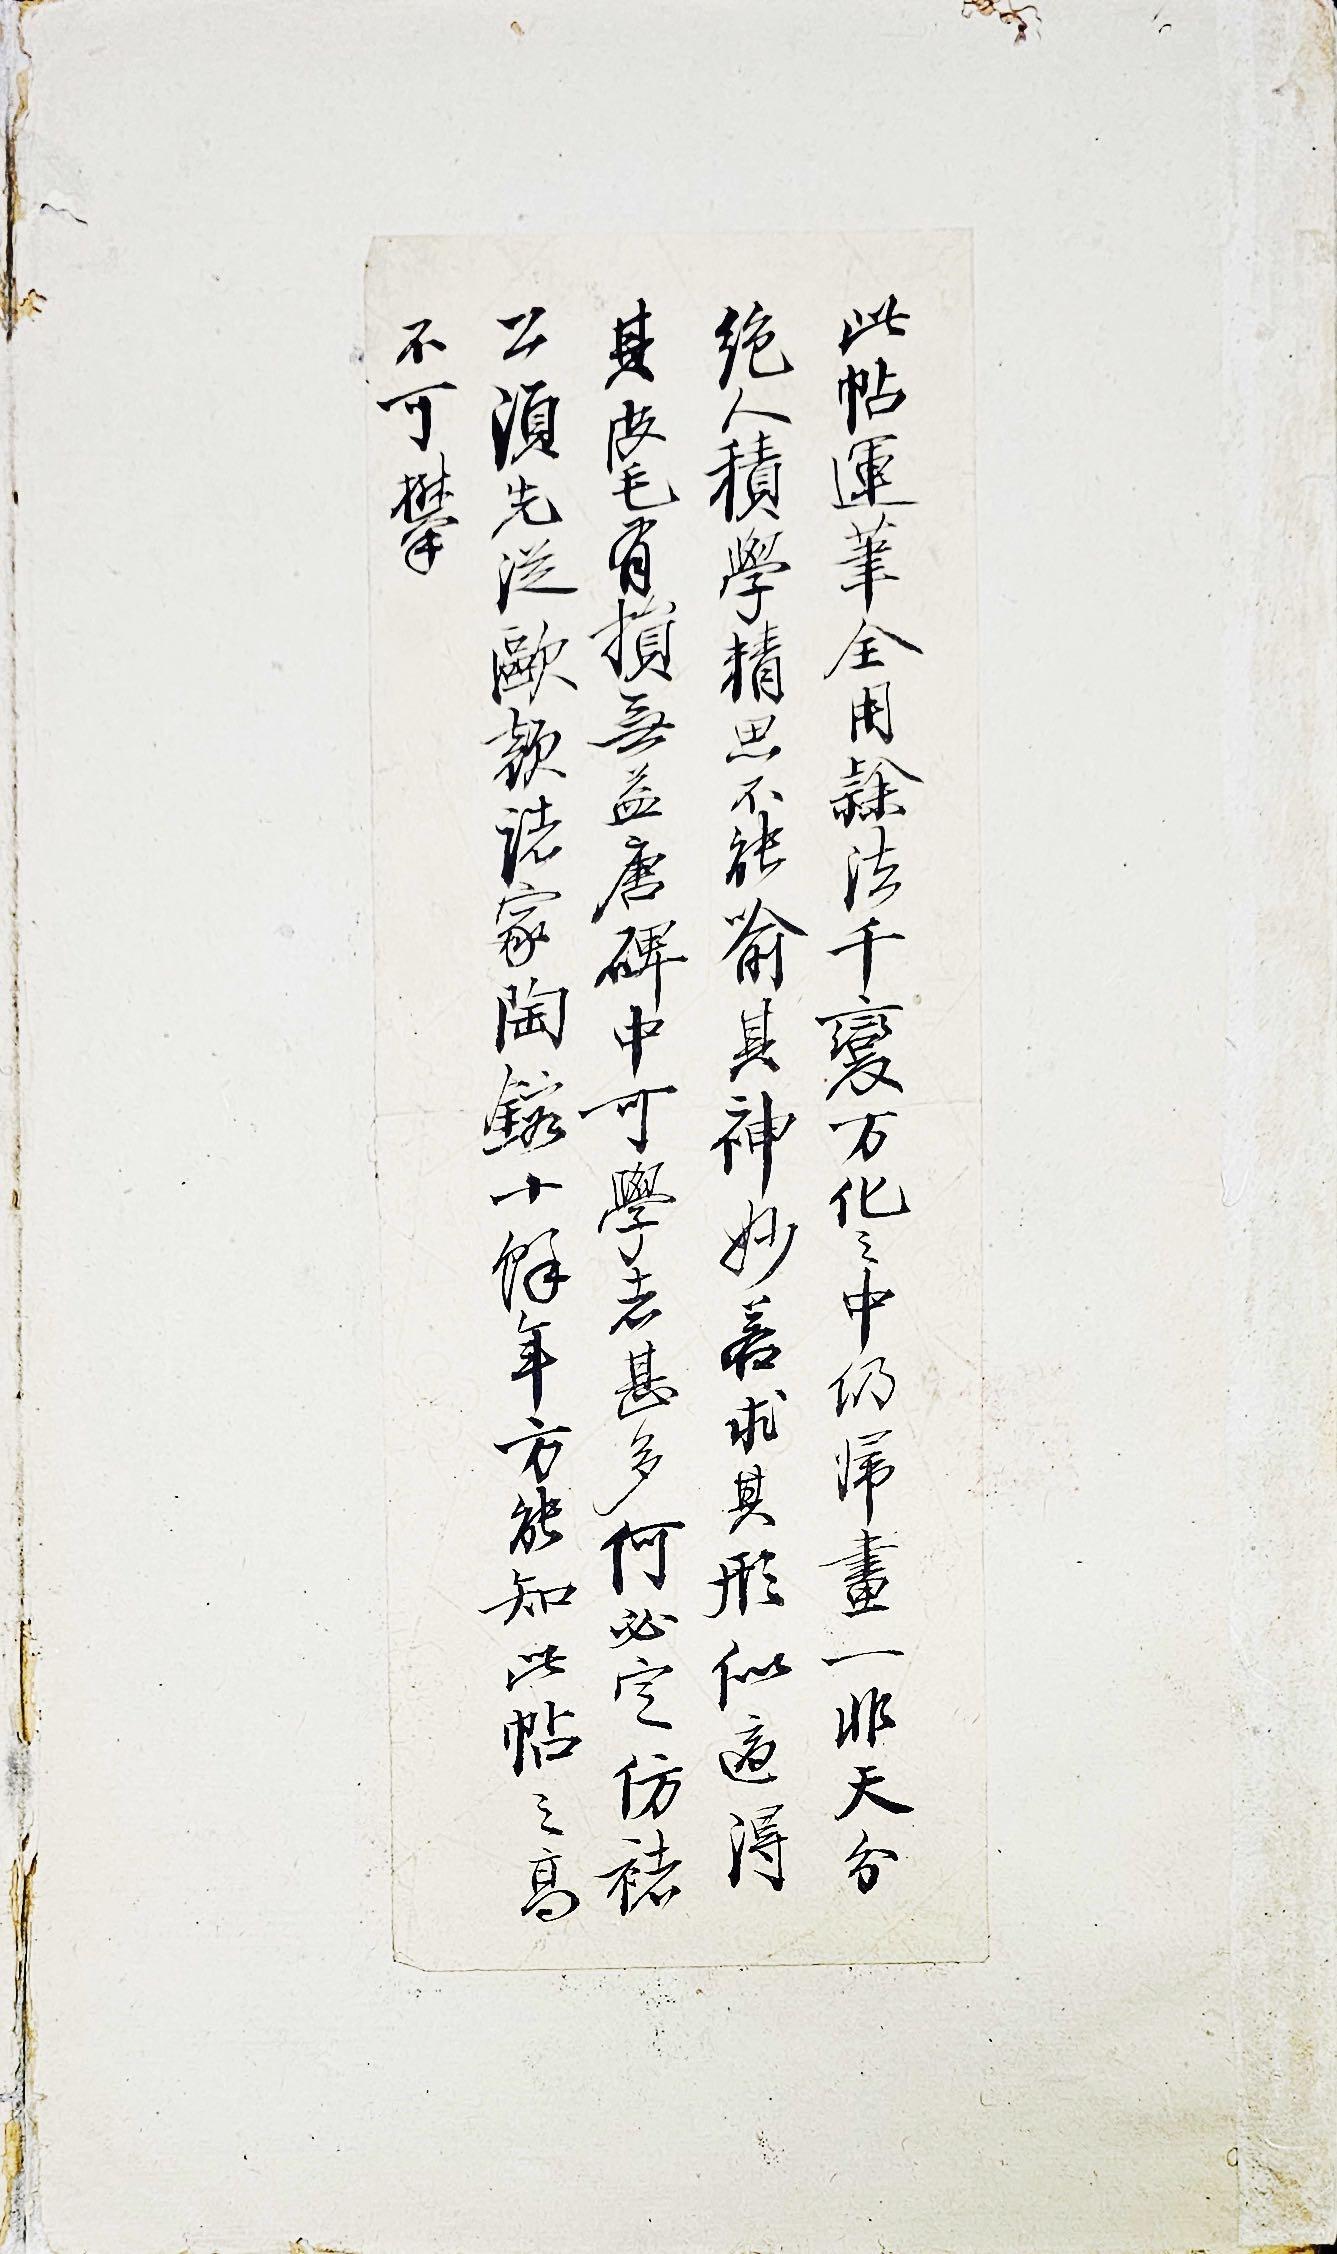 此帖運筆全用隸法千變万化之中仍歸畫一非天分
絶人積學精思不能喻其神妙若求其形似適得
其皮毛有損無益唐碑中可學者甚多何必定仿褚
公須先從歐顏諸家陶鎔十餘年方能知此帖之高
不可攀